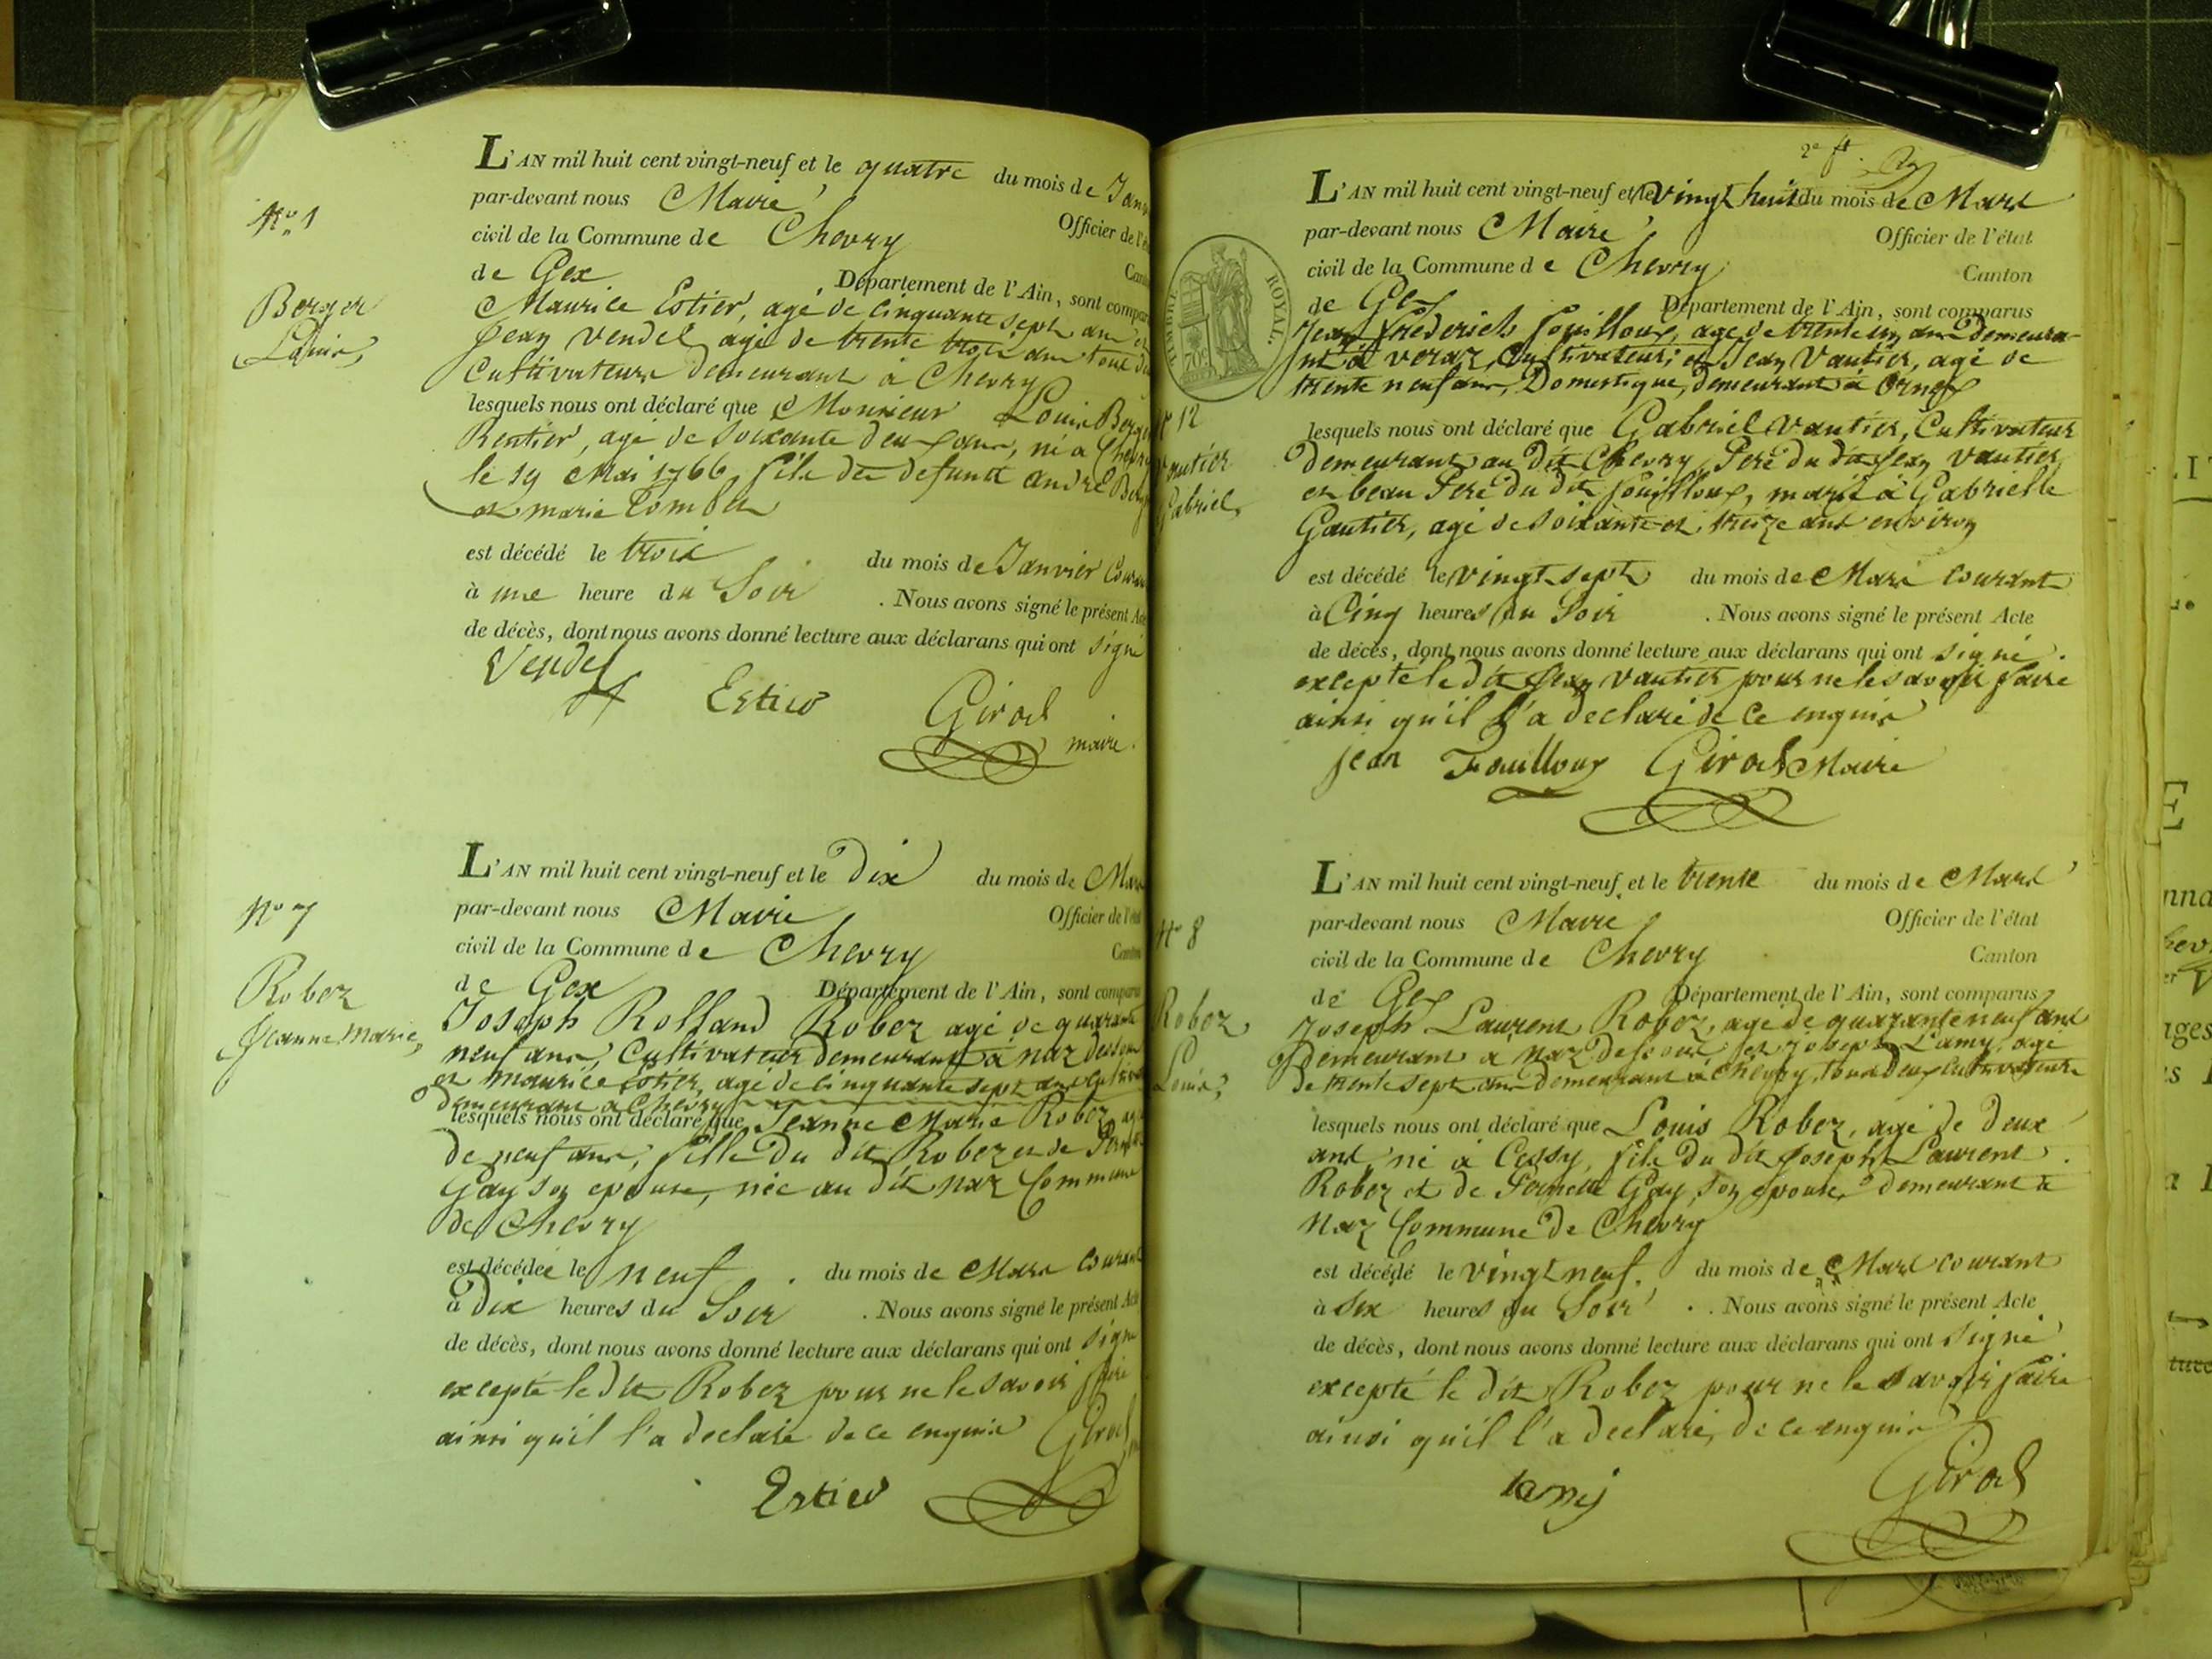 L'AN mil huit cent vingt-neuf et le quatre du mois de
par-devant nous Maire
Officier de
civil de la Commune de Chevry
de Gex
Département de l'Ain, sont
Maurice Estier, agé de cinquante sept ans et
Jean Vendel agé de trente trois ans tous
Cultivateurs demeurant à Chevry
lesquels nous ont déclaré que Monsieur Louis
Rentier, agé de soixante deux ans, né à
le 19 Mai 1766 fils de defunt André
et marie
est décédé le trois du mois de Janvier
à une heure du Soir . Nous avons signé le présent
de décès, dont nous avons donné lecture aux déclarans qui ont signé
Vendel
Estier
Girod
maire.
No. 1
Berger
Louis
L'AN mil huit cent vingt-neuf et le Dix du mois de
par-devant nous Maire Officier de
civil de la Commune de Chevry
de Gex Département de l'Ain, sont
Joseph Rolland Robez agé de quarante
neuf ans, Cultivateur demeurant à naz dessous
et maurice Estier, agé de cinquante sept ans
demeurant à Chevry
lesquels nous ont déclaré que Jeanne Marie Robez
de neuf ans, fille du dit Robez et de
Gay son epouse, née au dit naz Commune
de Chevry
est décédée le neuf . du mois de Mars
à Dix heures du Soir . Nous avons signé le présent
de décès, dont nous avons donné lecture aux déclarans qui ont
excepté le dit Robez pour ne le savoir faire
ainsi qu'il l'a declaré de ce enquis
Girod
Estier
No 7
Robez
Jeanne Marie
2e ft.
L'AN mil huit cent vingt-neuf et le vingt huit du mois de Mars
par-devant nous Maire Officier de l'état
civil de la Commune de Chevry
Canton
de Gex
Département de l'Ain, sont comparus
TIMBRE ROYAL.
70c
Jean frederich fouilloux, agé de trente un ans demeura-
nt à veraz, Cultivateur; et Jean Vautier, agé de
trente neuf ans, Domestique, demeurant à Ornex
lesquels nous ont déclaré que Gabriel Vautier, Cultivateur
demeurant au dit Chevry, Pere du dit Jean Vautier
et beau Pere du dit fouilloux, marié à Gabrielle
Gautier, agé de soixante et treize ans environ
est décédé le vingt sept du mois de Mars courant
à Cinq heures du Soir . Nous avons signé le présent Acte
de décès, dont nous avons donné lecture aux déclarans qui ont signé.
excepté le dit Jean Vautier pour ne le savoir faire
ainsi qu'il l'a declaré de ce enquis
Jean Fouilloux Girod Maire
12
Vautier
Gabriel
L'AN mil huit cent vingt-neuf et le trente du mois de Mars
par-devant nous Maire Officier de l'état
civil de la Commune de Chevry Canton
de Gex Département de l'Ain, sont comparus
Joseph Laurent Robez, agé de quarante neuf ans
demeurant à Naz dessous, et Joseph Lamy, agé
de trente sept ans demeurant à Chevry, tous deux cultivateurs
lesquels nous ont déclaré que Louis Robez, agé de Deux
ans né à Cessy, fils du dit Joseph Laurent
Robez et de Pernette Gay, son epouse, demeurant à
Naz Commune de Chevry
est décédé le vingt neuf. du mois de Mars courant
à Six heures du Soir . . Nous avons signé le présent Acte
de décès, dont nous avons donné lecture aux déclarans qui ont signé
excepté le dit Robez pour ne le savoir faire
ainsi qu'il l'a declaré, de ce enquis
Girod
No 8
Robez
Louis